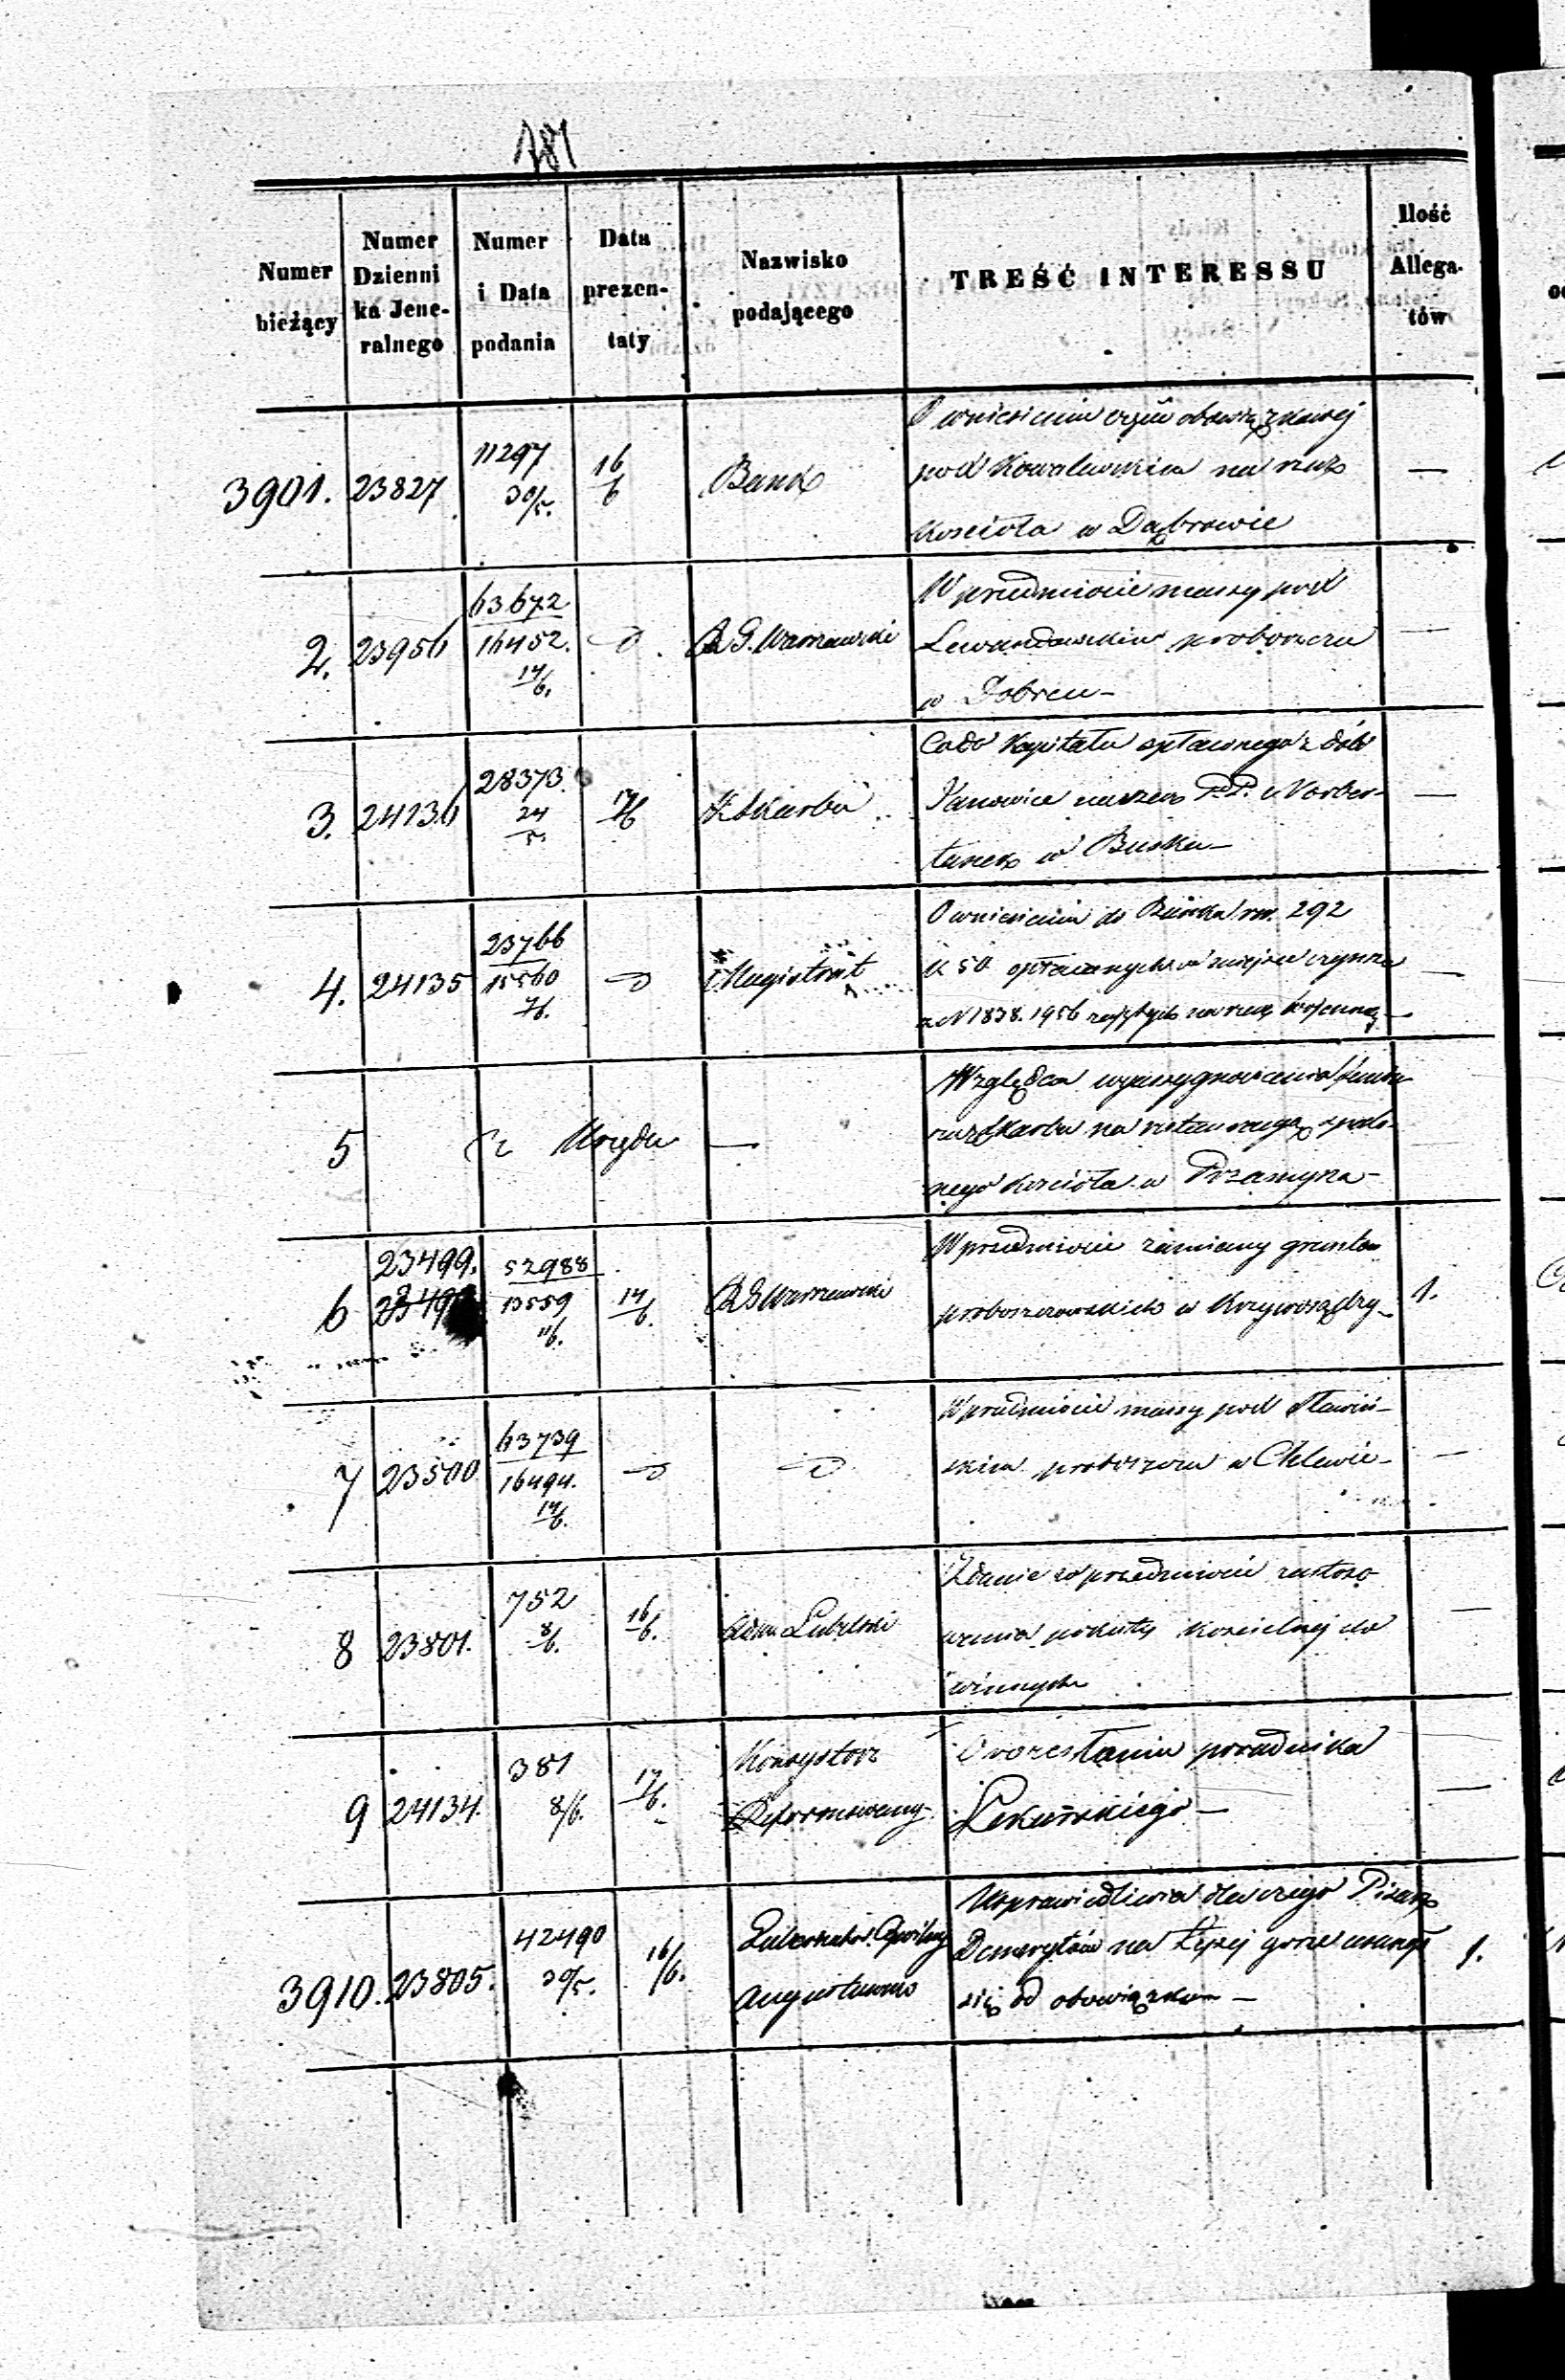 781
Numer bieżący
Numer Dzienni ka Jene- ralnego
Numer i Data podania
Data prezen- taty
Nazwisko podającego
TREŚĆ INTERESSU
Ilość Allega- tów
3901. 23827 11297 30/5. 16/6 Bank
O wniesieniu
pod Kowalewskim na rzecz —
Kościoła w Dąbrowie
2. 23956 63672 16452. 14/6. R. G. Warszawski
W przedmiocie massy pod
Lewandowskim proboszczu —
w Dobrcu —
3. 24136 28373. 24/5. 17/6 K. Skarbu
Co do Kapitału spłaconego z dóbr
Janowice na rzecz P.P. Norber- —
tanek w Busku —
4. 24135 23766 15560 7/6. Magistrat
O wniesieniu do Banku rsr. 292
k 50 opłacanych w miejsce czynszu —
z N 1838. 1956 zajętych na rzecz
5 Z Urzędu —
Względem wyassygnowania fundu
szu Skarbu na restauracyą spalo-
nego kościoła w Przasnyszu —
6 23499. 52988 13559 11/6. 14/6. R G Warszawski
W przedmiocie zamiany gruntów
proboszczowskich w Krzyworządzy — 1.
7 23500 63739 16494. 14/6.
W przedmiocie massy pod Sławiń-
skim proboszczu w Chlewie — —
8 23801. 752 8/6. 16/6. Adm. Lubelski
Zdanie w przedmiocie zastoso
wania pokuty kościelnej do —
winnych
9 24134. 381 8/6. 17/6. Konsystorz Reformowany
O rozesłaniu poradnika
Lekarskiego — —
3910. 23805. 42490 30/5. 16/6. Gubernator Cywilny Augustowski
Usprawiedliwia dla czego Pisarz
Demerytów na Łysej górze usunął 1.
się od obowiązków —